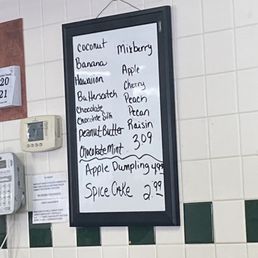 coconut
Banana
Hawaiian
Butterscotch
Chocolate
Chocolate Silk
Peanut Butter
Chocolate Mint
Mixberry
Apple
Cherry
Peach
Pecan
Raisin
3.09
Apple Dumpling 4.99
Spice Cake 2.99
20
21